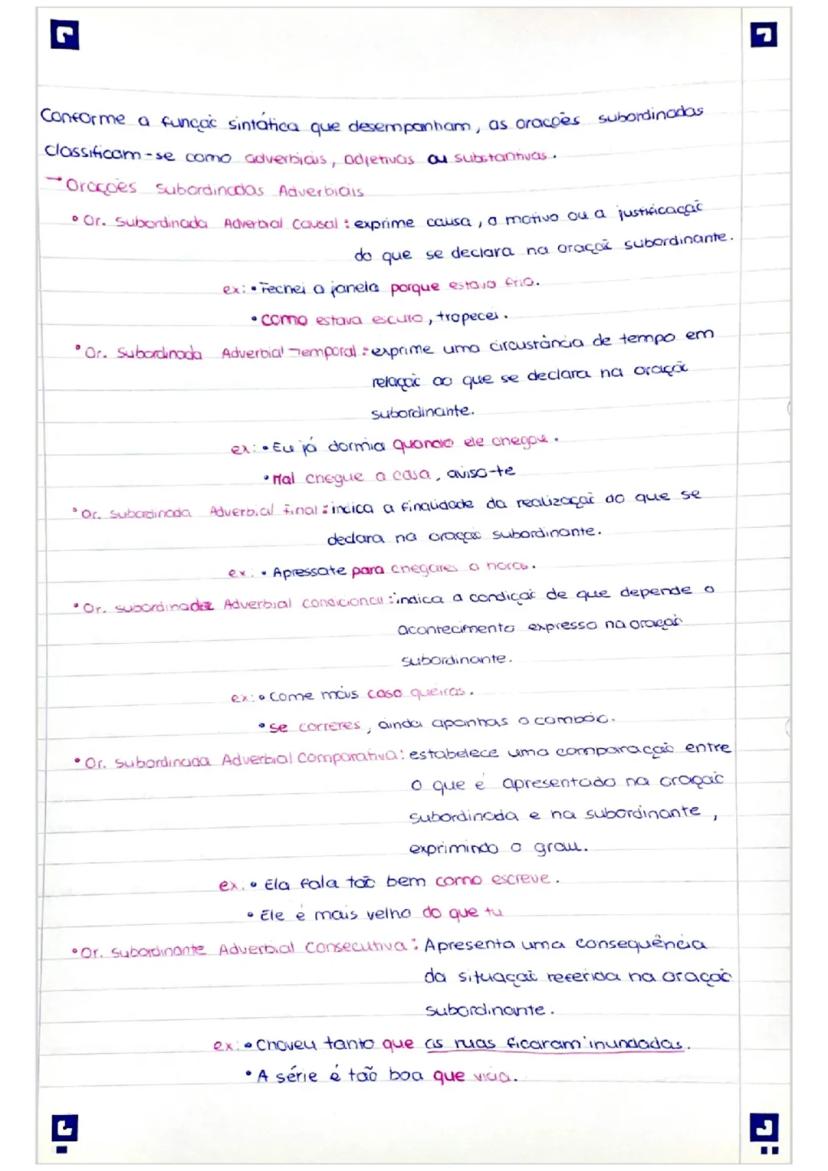 Conforme a função sintática que desempanham, as orações subordinadas
classificam-se como adverbiais, adjetivas ou substantivas.
→Orações Subordinadas Adverbiais
• Or. Subordinada Adverbial Causal: exprime causa, o motivo ou a justificação
do que se declara na oração subordinante.
ex: • Fechei a janela porque estava frio.
• Como estava escuro, tropecei.
• Or. Subordinada Adverbial Temporal: exprime uma circustância de tempo em
relação ao que se declara na oração
subordinante.
ex: • Eu já dormia quando ele chegou.
• Mal chegue a casa, aviso-te
• Or. subordinada Adverbial final: indica a finalidade da realização do que se
declara na oração subordinante.
ex: • Apressate para chegares a horas.
• Or. subordinada Adverbial condicional: indica a condição de que depende o
acontecimento expresso na oração
subordinante.
ex: • Come mais caso queiras.
• Se correres, ainda apanhas o comboio.
• Or. Subordinada Adverbial Comparativa: estabelece uma comparação entre
o que é apresentado na oração
subordinada e na subordinante,
exprimindo o grau.
ex. • Ela fala tão bem como escreve.
• Ele é mais velho do que tu
• Or. Subordinante Adverbial Consecutiva: Apresenta uma consequência
da situação referida na oração
subordinante.
ex: • Choveu tanto que as ruas ficaram inundadas.
• A série é tão boa que vicia.